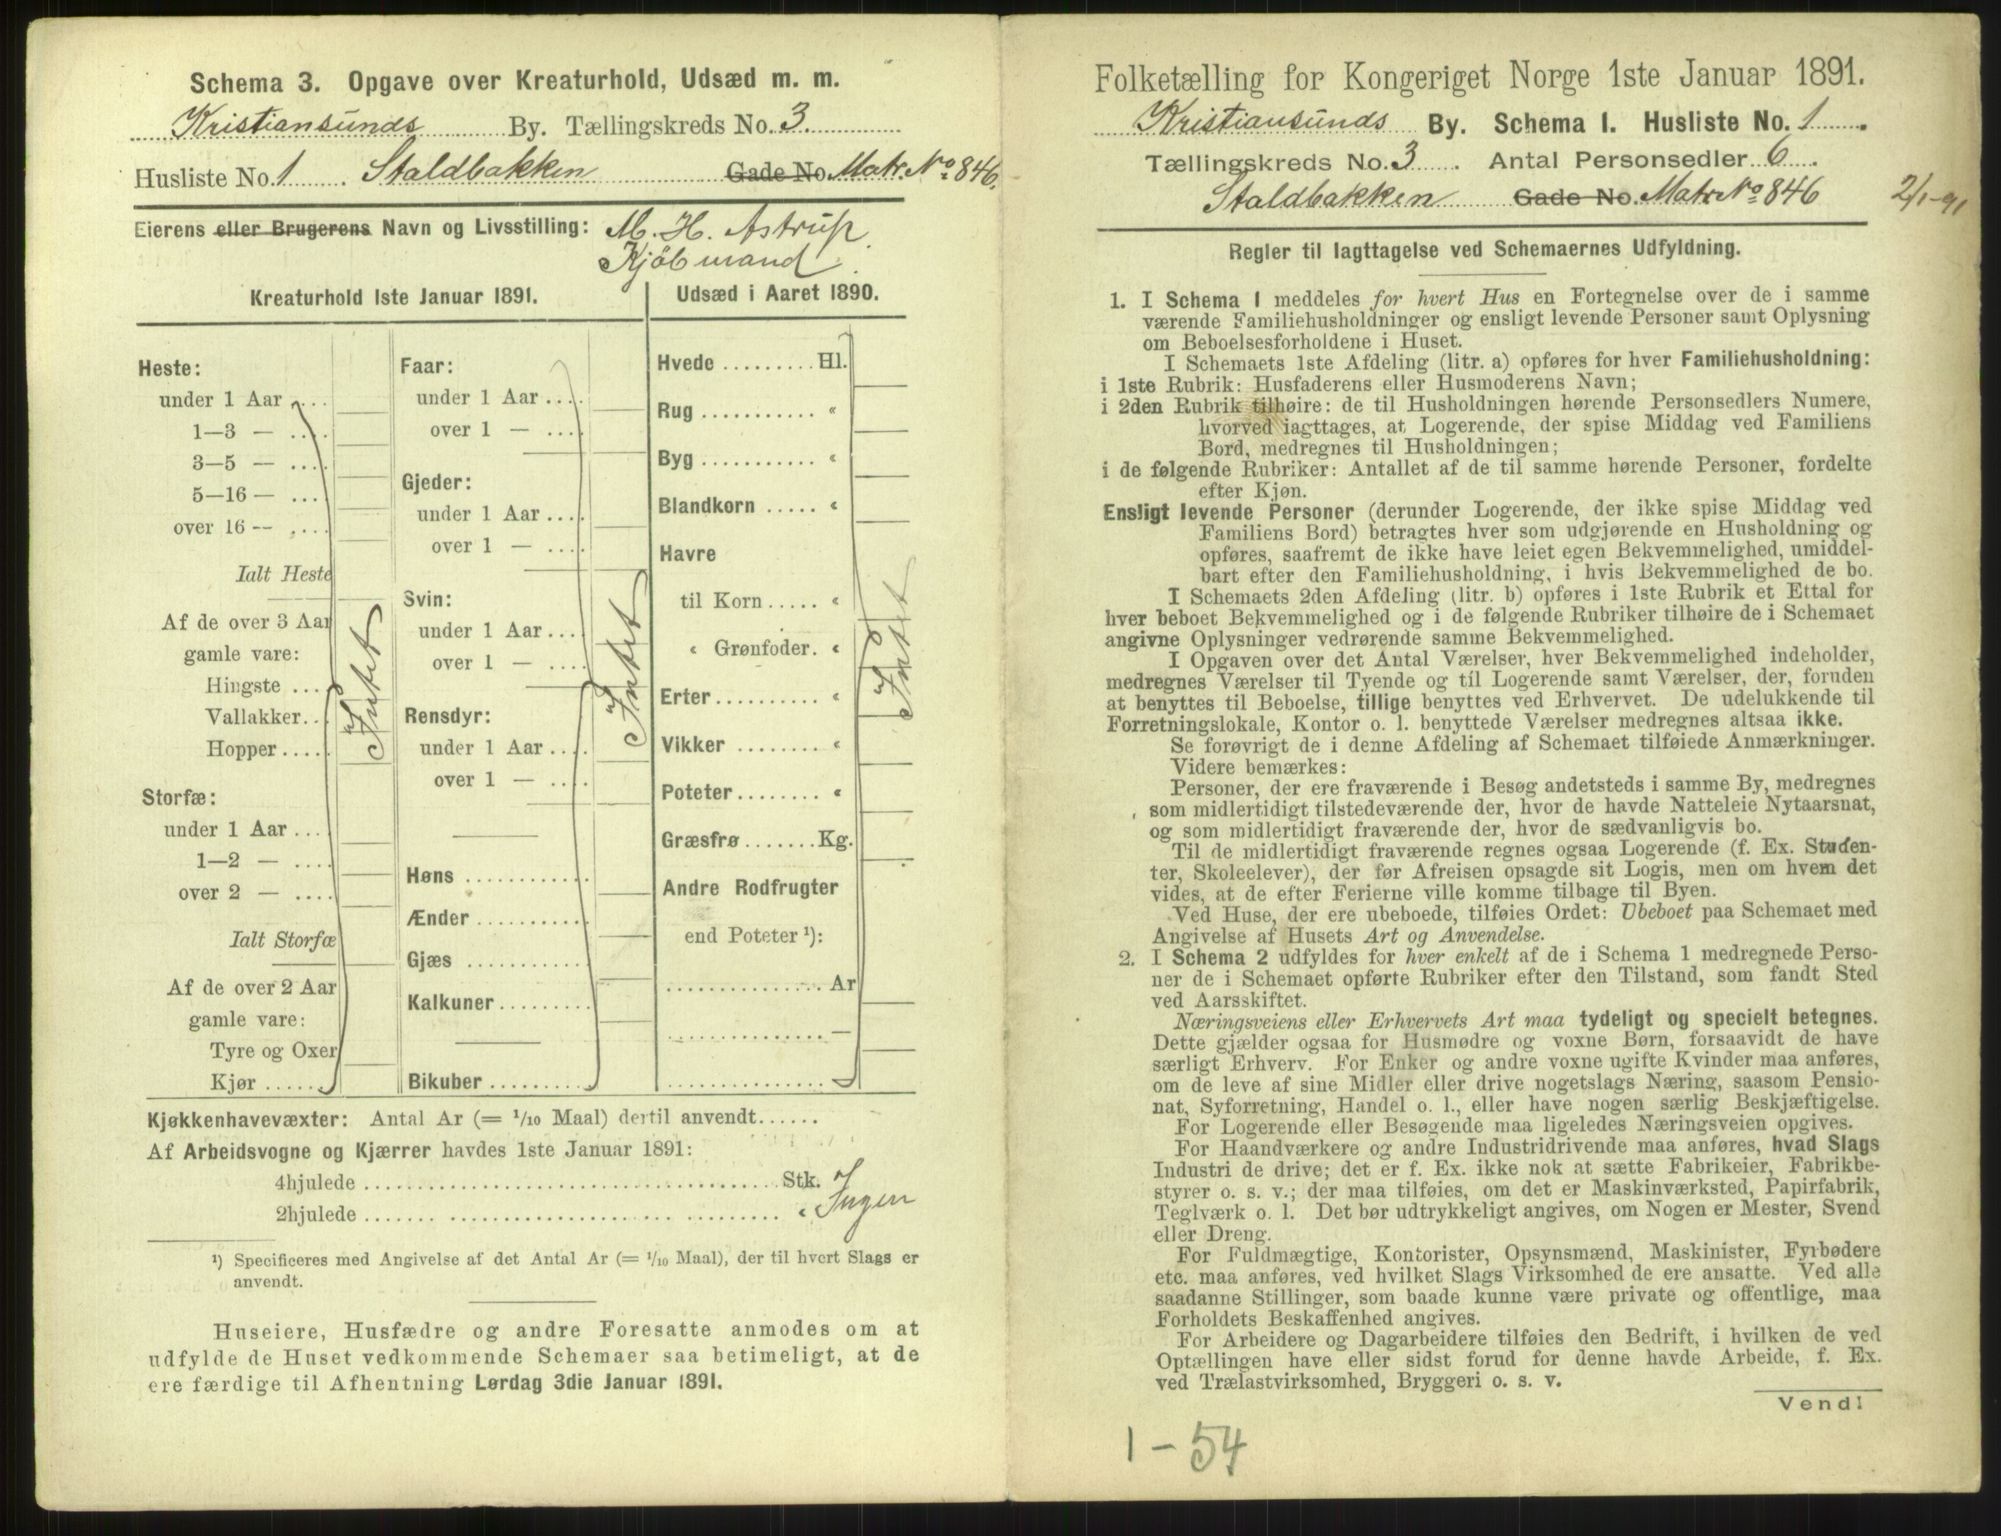 Schema 3. Opgave over Kreaturhold, Udsæd m. m.
Kristiansunds By. Tællingskreds No. 3.
Husliste No. 1. Staldbakken Gade No. Matr. No 846.
Eierens eller Brugerens Navn og Livsstilling: M. H. Astrup.
Kjöbmand.
Kreaturhold 1ste Januar 1891.
Heste:
under 1 Aar ....
1—3 — ....
3—5 — ....
5—16 — ....
over 16 — ....
Ialt Heste
Af de over 3 Aar
gamle vare:
Hingste ...
Vallakker...
Hopper .....
Intet
Storfæ:
under 1 Aar ....
1—2 — ....
over 2 — ....
Ialt Storfæ
Af de over 2 Aar
gamle vare:
Tyre og Oxer
Kjør ......
Faar:
under 1 Aar ....
over 1 — ....
Gjeder:
under 1 Aar ....
over 1 — ....
Svin:
under 1 Aar ....
over 1 — ....
Intet
Rensdyr:
under 1 Aar ....
over 1 — ....
Høns ............
Ænder ..........
Gjæs ............
Kalkuner .........
Bikuber ..........
Udsæd i Aaret 1890.
Hvede ......... Hl.
Rug ........... «
Byg ........... «
Blandkorn ..... «
Havre
til Korn ..... «
« Grønfoder. «
Intet
Erter ......... «
Vikker ........ «
Poteter ........ «
Græsfrø ....... Kg.
Andre Rodfrugter
end Poteter ¹):
............... Ar
............... —
...............
Kjøkkenhavevæxter: Antal Ar (= 1/10 Maal) dertil anvendt......
Af Arbeidsvogne og Kjærrer havdes 1ste Januar 1891:
4hjulede ........................................ Stk.
2hjulede ........................................ « Ingen
¹) Specificeres med Angivelse af det Antal Ar (= 1/10 Maal), der til hvert Slags er
anvendt.
Huseiere, Husfædre og andre Foresatte anmodes om at
udfylde de Huset vedkommende Schemaer saa betimeligt, at de
ere færdige til Afhentning Lørdag 3die Januar 1891.
Folketælling for Kongeriget Norge 1ste Januar 1891.
Kristiansunds By. Schema 1. Husliste No. 1.
Tællingskreds No. 3. Antal Personsedler 6.
Staldbakken Gade No. Matr. No 846 2/1-91
Regler til Iagttagelse ved Schemaernes Udfyldning.
1. I Schema 1 meddeles for hvert Hus en Fortegnelse over de i samme
værende Familiehusholdninger og ensligt levende Personer samt Oplysning
om Beboelsesforholdene i Huset.
I Schemaets 1ste Afdeling (litr. a) opføres for hver Familiehusholdning:
i 1ste Rubrik: Husfaderens eller Husmoderens Navn;
i 2den Rubrik tilhøire: de til Husholdningen hørende Personsedlers Numere,
hvorved iagttages, at Logerende, der spise Middag ved Familiens
Bord, medregnes til Husholdningen;
i de følgende Rubriker: Antallet af de til samme hørende Personer, fordelte
efter Kjøn.
Ensligt levende Personer (derunder Logerende, der ikke spise Middag ved
Familiens Bord) betragtes hver som udgjørende en Husholdning og
opføres, saafremt de ikke have leiet egen Bekvemmelighed, umiddel-
bart efter den Familiehusholdning, i hvis Bekvemmelighed de bo.
I Schemaets 2den Afdeling (litr. b) opføres i 1ste Rubrik et Ettal for
hver beboet Bekvemmelighed og i de følgende Rubriker tilhøire de i Schemaet
angivne Oplysninger vedrørende samme Bekvemmelighed.
I Opgaven over det Antal Værelser, hver Bekvemmelighed indeholder,
medregnes Værelser til Tyende og til Logerende samt Værelser, der, foruden
at benyttes til Beboelse, tillige benyttes ved Erhvervet. De udelukkende til
Forretningslokale, Kontor o. l. benyttede Værelser medregnes altsaa ikke.
Se forøvrigt de i denne Afdeling af Schemaet tilføiede Anmærkninger.
Videre bemærkes:
Personer, der ere fraværende i Besøg andetsteds i samme By, medregnes
som midlertidigt tilstedeværende der, hvor de havde Natteleie Nytaarsnat,
og som midlertidigt fraværende der, hvor de sædvanligvis bo.
Til de midlertidigt fraværende regnes ogsaa Logerende (f. Ex. Studen-
ter, Skoleelever), der før Afreisen opsagde sit Logis, men om hvem det
vides, at de efter Ferierne ville komme tilbage til Byen.
Ved Huse, der ere ubeboede, tilføies Ordet: Ubeboet paa Schemaet med
Angivelse af Husets Art og Anvendelse.
2. I Schema 2 udfyldes for hver enkelt af de i Schema 1 medregnede Perso-
ner de i Schemaet opførte Rubriker efter den Tilstand, som fandt Sted
ved Aarsskiftet.
Næringsveiens eller Erhvervets Art maa tydeligt og specielt betegnes.
Dette gjælder ogsaa for Husmødre og voxne Børn, forsaavidt de have
særligt Erhverv. For Enker og andre voxne ugifte Kvinder maa anføres,
om de leve af sine Midler eller drive nogetslags Næring, saasom Pensio-
nat, Syforretning, Handel o. l., eller have nogen særlig Beskjæftigelse.
For Logerende eller Besøgende maa ligeledes Næringsveien opgives.
For Haandværkere og andre Industridrivende maa anføres, hvad Slags
Industri de drive; det er f. Ex. ikke nok at sætte Fabrikeier, Fabrikbe-
styrer o. s. v.; der maa tilføies, om det er Maskinværksted, Papirfabrik,
Teglværk o. l. Det bør udtrykkeligt angives, om Nogen er Mester, Svend
eller Dreng.
For Fuldmægtige, Kontorister, Opsynsmænd, Maskinister, Fyrbødere
etc. maa anføres, ved hvilket Slags Virksomhed de ere ansatte. Ved alle
saadanne Stillinger, som baade kunne være private og offentlige, maa
Forholdets Beskaffenhed angives.
For Arbeidere og Dagarbeidere tilføies den Bedrift, i hvilken de ved
Optællingen have eller sidst forud for denne havde Arbeide, f. Ex.
ved Trælastvirksomhed, Bryggeri o. s. v.
Vend!
1 - 54